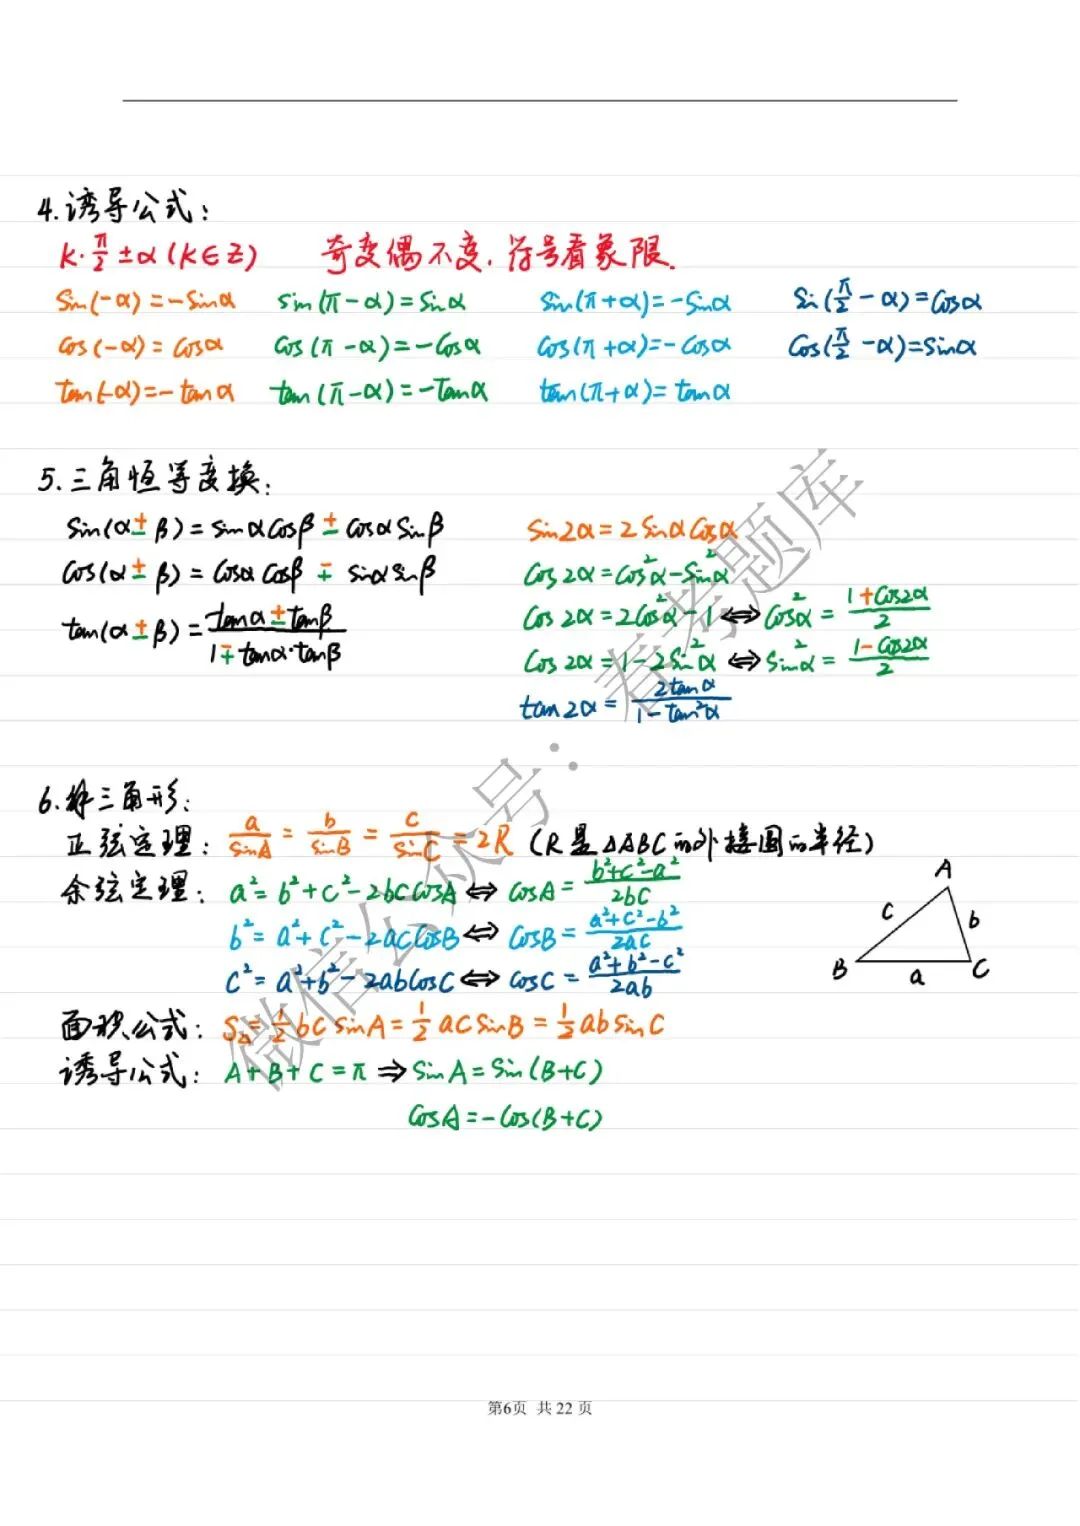 4.诱导公式:
k·π/2±α(k∈Z) 奇变偶不变,符号看象限.
sin(-α)=-sinα sin(π-α)=sinα sin(π+α)=-sinα sin(π/2-α)=cosα
cos(-α)=cosα cos(π-α)=-cosα cos(π+α)=-cosα cos(π/2-α)=sinα
tan(-α)=-tanα tan(π-α)=-tanα tan(π+α)=tanα
5.三角恒等变换:
sin(α±β)=sinαcosβ±cosαsinβ sin2α=2sinαcosα
cos(α±β)=cosαcosβ∓sinαsinβ cos2α=cos²α-sin²α
cos2α=2cos²α-1⇔cos²α=(1+cos2α)/2
tan(α±β)=(tanα±tanβ)/(1∓tanα·tanβ) cos2α=1-2sin²α⇔sin²α=(1-cos2α)/2
tan2α=2tanα/(1-tan²α)
6.解三角形:
正弦定理: a/sinA=b/sinB=c/sinC=2R (R是△ABC的外接圆的半径)
余弦定理: a²=b²+c²-2bccosA⇔cosA=(b²+c²-a²)/2bc
b²=a²+c²-2accosB⇔cosB=(a²+c²-b²)/2ac
c²=a²+b²-2abcosC⇔cosC=(a²+b²-c²)/2ab
A
c b
B a C
面积公式: S△=1/2bcsinA=1/2acsinB=1/2absinC
诱导公式: A+B+C=π⇒sinA=sin(B+C)
cosA=-cos(B+C)
微信公众号:春考题库
第6页 共22页